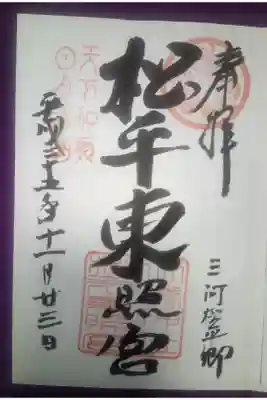 奉拝
三河松平郷
松平東照宮
天下和順
平成二十五年十一月廿三日